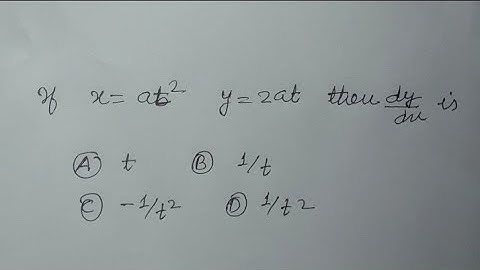 If x = at² y = 2at then dy/dx is
(A) t (B) 1/t
(C) -1/t² (D) 1/t2